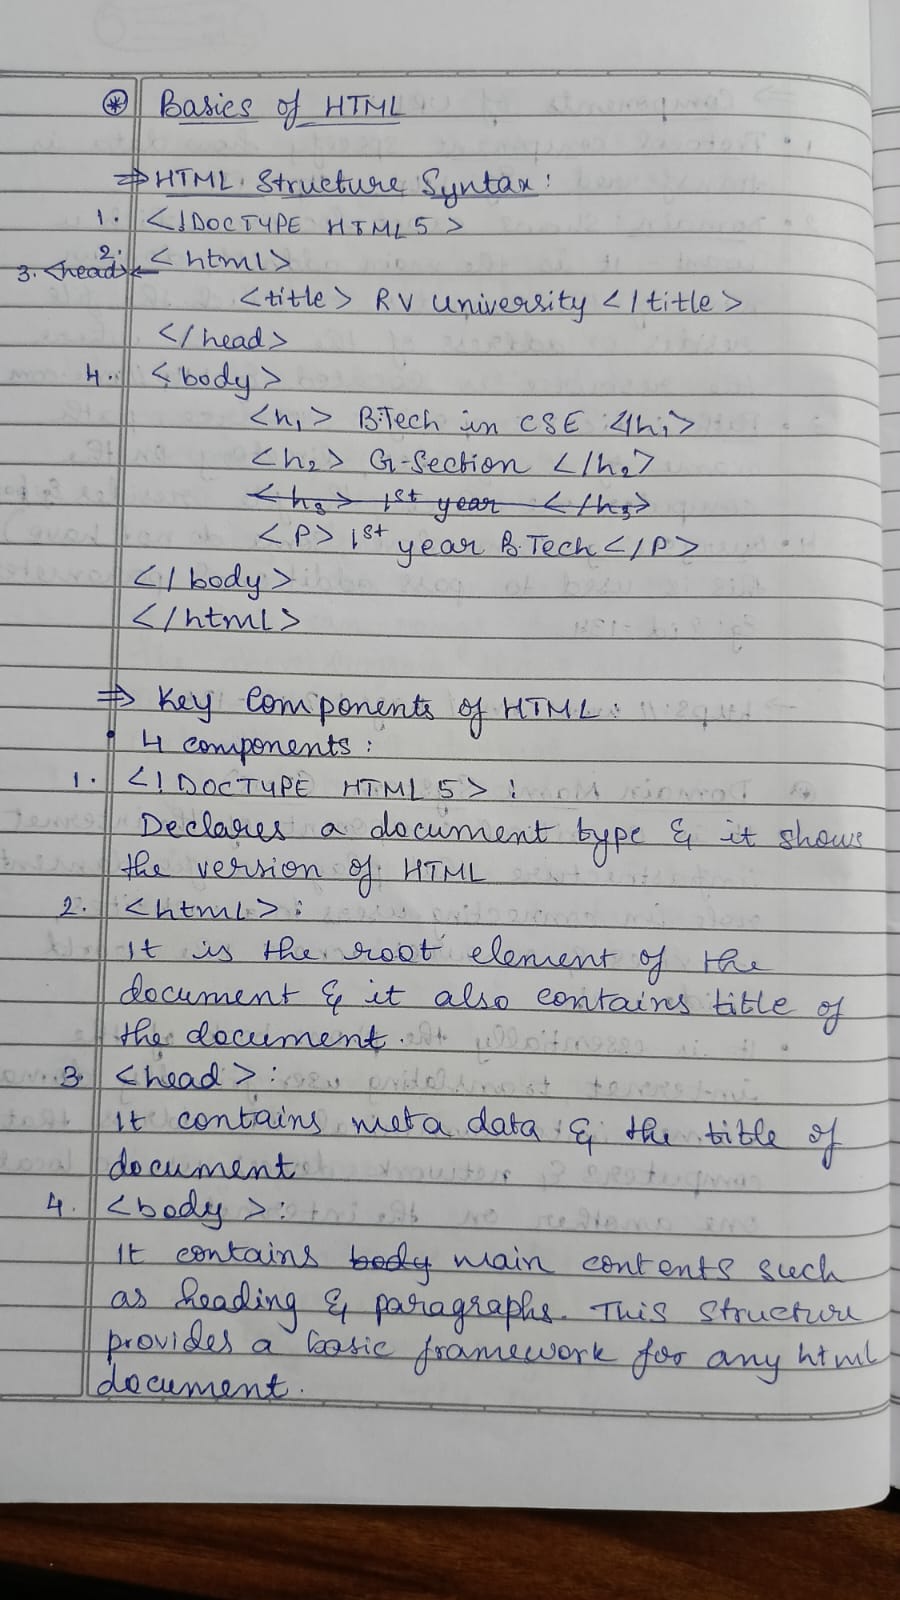 ⊛ Basics of HTML
⇒ HTML Structure Syntax:
1. <!DOCTYPE HTML 5>
2. <html>
3. <head>
<title> RV University </title>
</head>
4. <body>
<h1> B.Tech in CSE </h1>
<h2> G-Section </h2>
<h3> 1st year </h3>
<P> 1st year B.Tech </P>
</body>
</html>
⇒ Key Components of HTML:
• 4 components:
1. <! DOCTYPE HTML 5> :
Declares a document type & it shows
the version of HTML
2. <html> :
It is the root element of the
document & it also contains title of
the document.
3. <head> :
It contains meta data & the title of
document
4. <body> :
It contains body main contents such
as heading & paragraphs. This structure
provides a basic framework for any html
document.